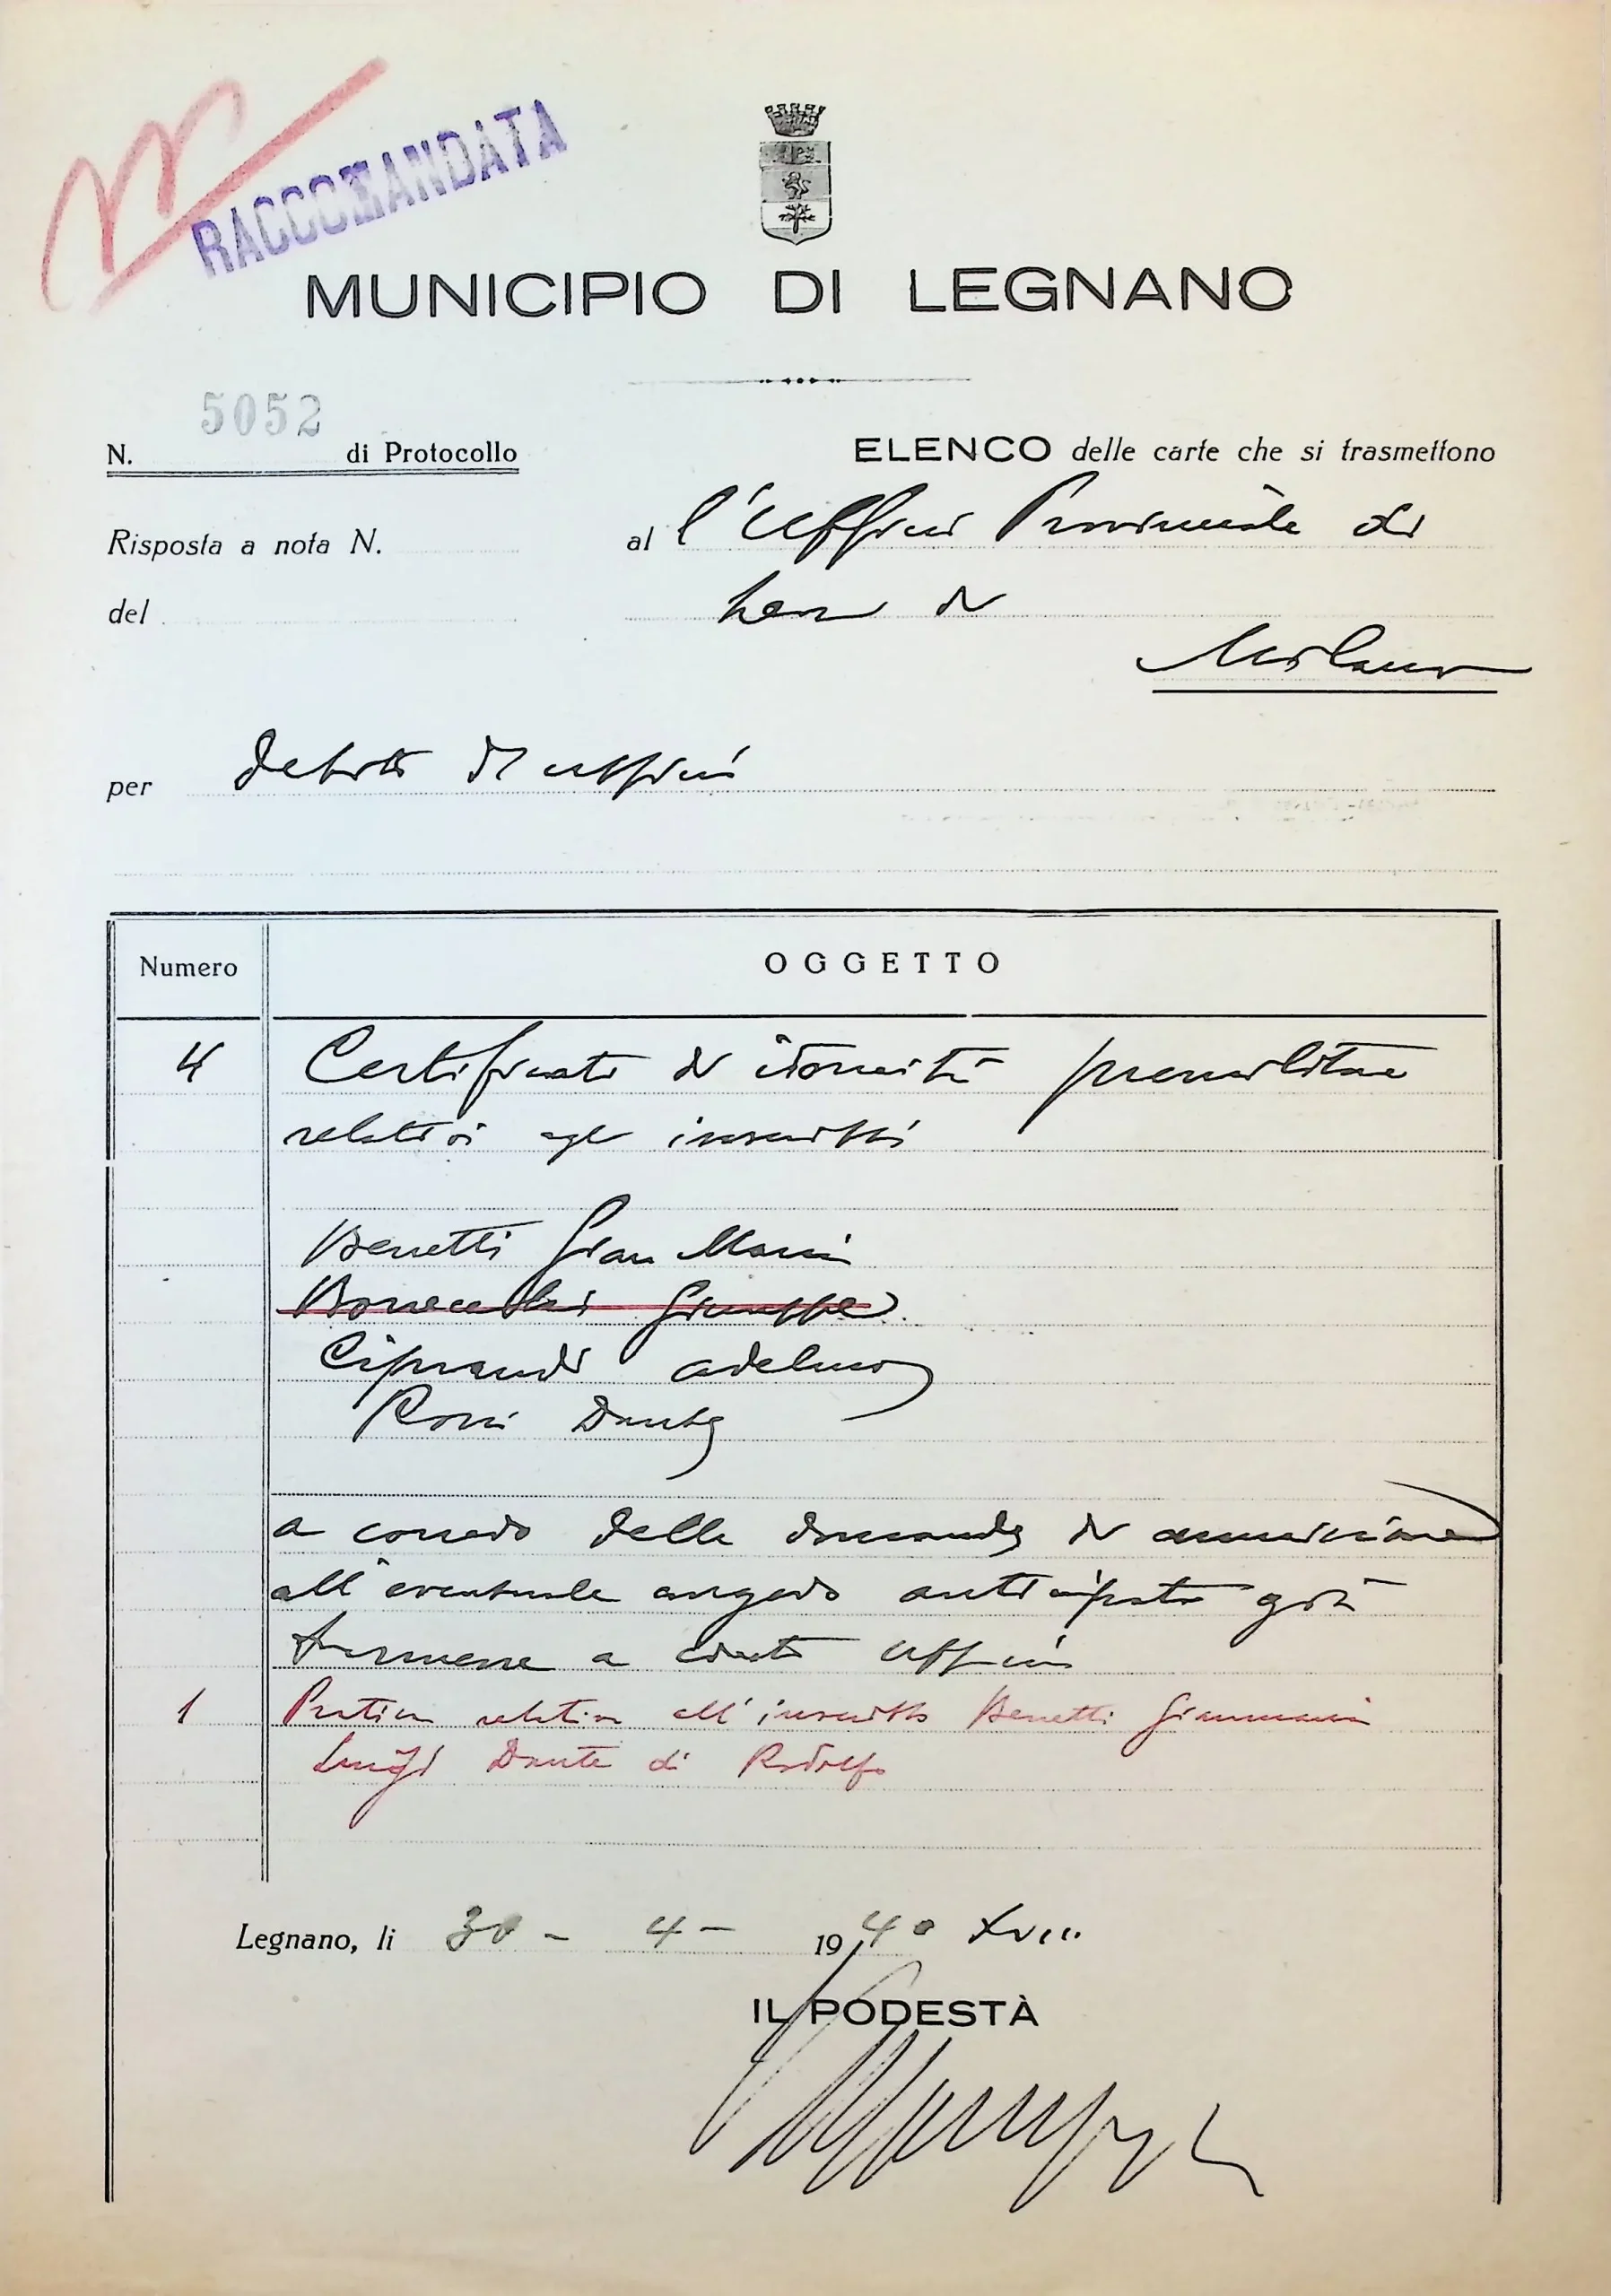 RACCOMANDATA
MUNICIPIO DI LEGNANO
5052
N. di Protocollo
ELENCO delle carte che si trasmettono
Risposta a nota N.
al l'Ufficio Provinciale di
del
Leva di
Milano
per debito d'ufficio
Numero
OGGETTO
4 Certificati di idoneità premilitare
relativi agli inscritti
Benetti Gian Maria
Giuseppe
Ciprandi Adelmo
Dante
a corredo delle domande di ammissione
all'eventuale congedo anticipato già
trasmesse a codesto Ufficio
1 Pratica relativa all'inscritto Benetti Gianmaria
Luigi Dante di Rodolfo
Legnano, li 30 - 4 - 1940 XVIII
IL PODESTÀ